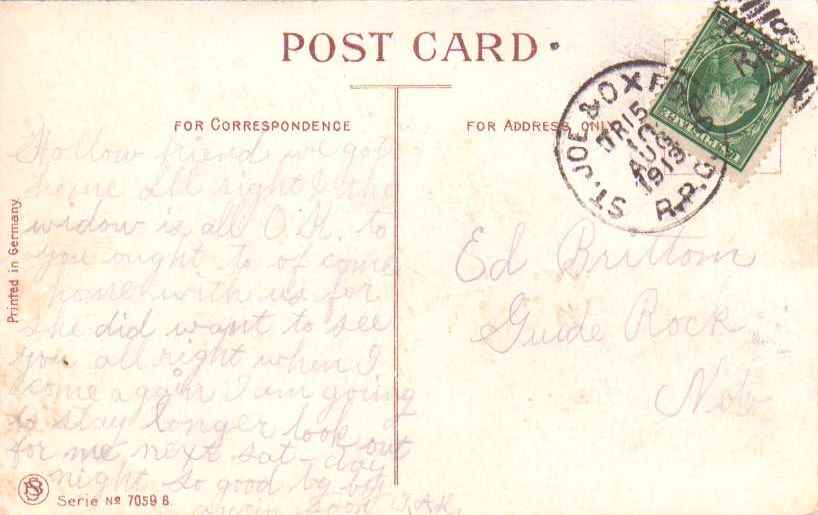 POST CARD
FOR CORRESPONDENCE
FOR ADDRESS ONLY
ST. JOE & OXFORD
TR 15
AUG
1913
R.P.O.
Hollow friend we got
home all right & the
widow is all O.K. to
you ought to of come
home with us for
she did want to see
you all right when I
come again I am going
to stay longer look out
for me next sat-day
night so good by by
soon
Ed Brittom
Guide Rock
Neb
Printed in Germany
Serie No 7059 B.